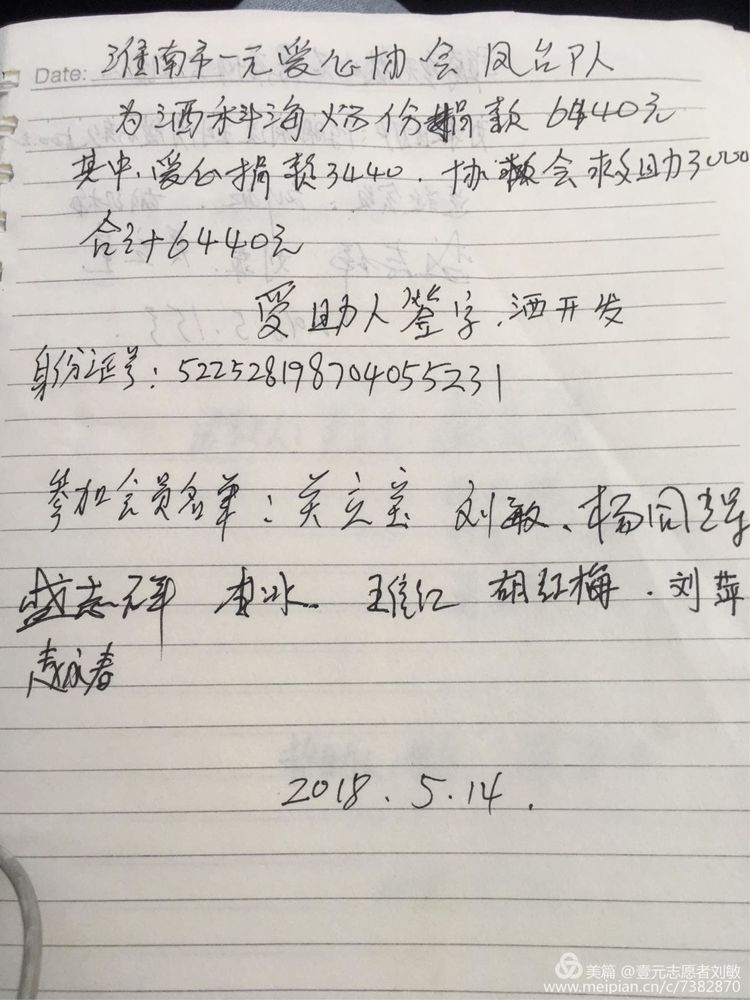 Date: 淮南市一元爱心协会凤台队
为洒科海烧伤捐款6440元
其中,爱心捐款3440.协会救助3000
合计6440元
受助人签字.洒开发
身份证号:522528198704055231
参加会员名单:关立兰 刘敏、杨同
盛志军 李冰. 王信红 胡红梅.刘萍
赵永春
2018.5.14.
美篇 @壹元志愿者刘敏
www.meipian.cn/c/7382870